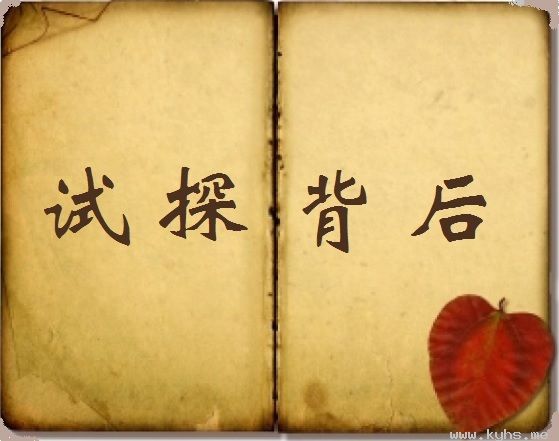 试探背后
www.kyhs.me